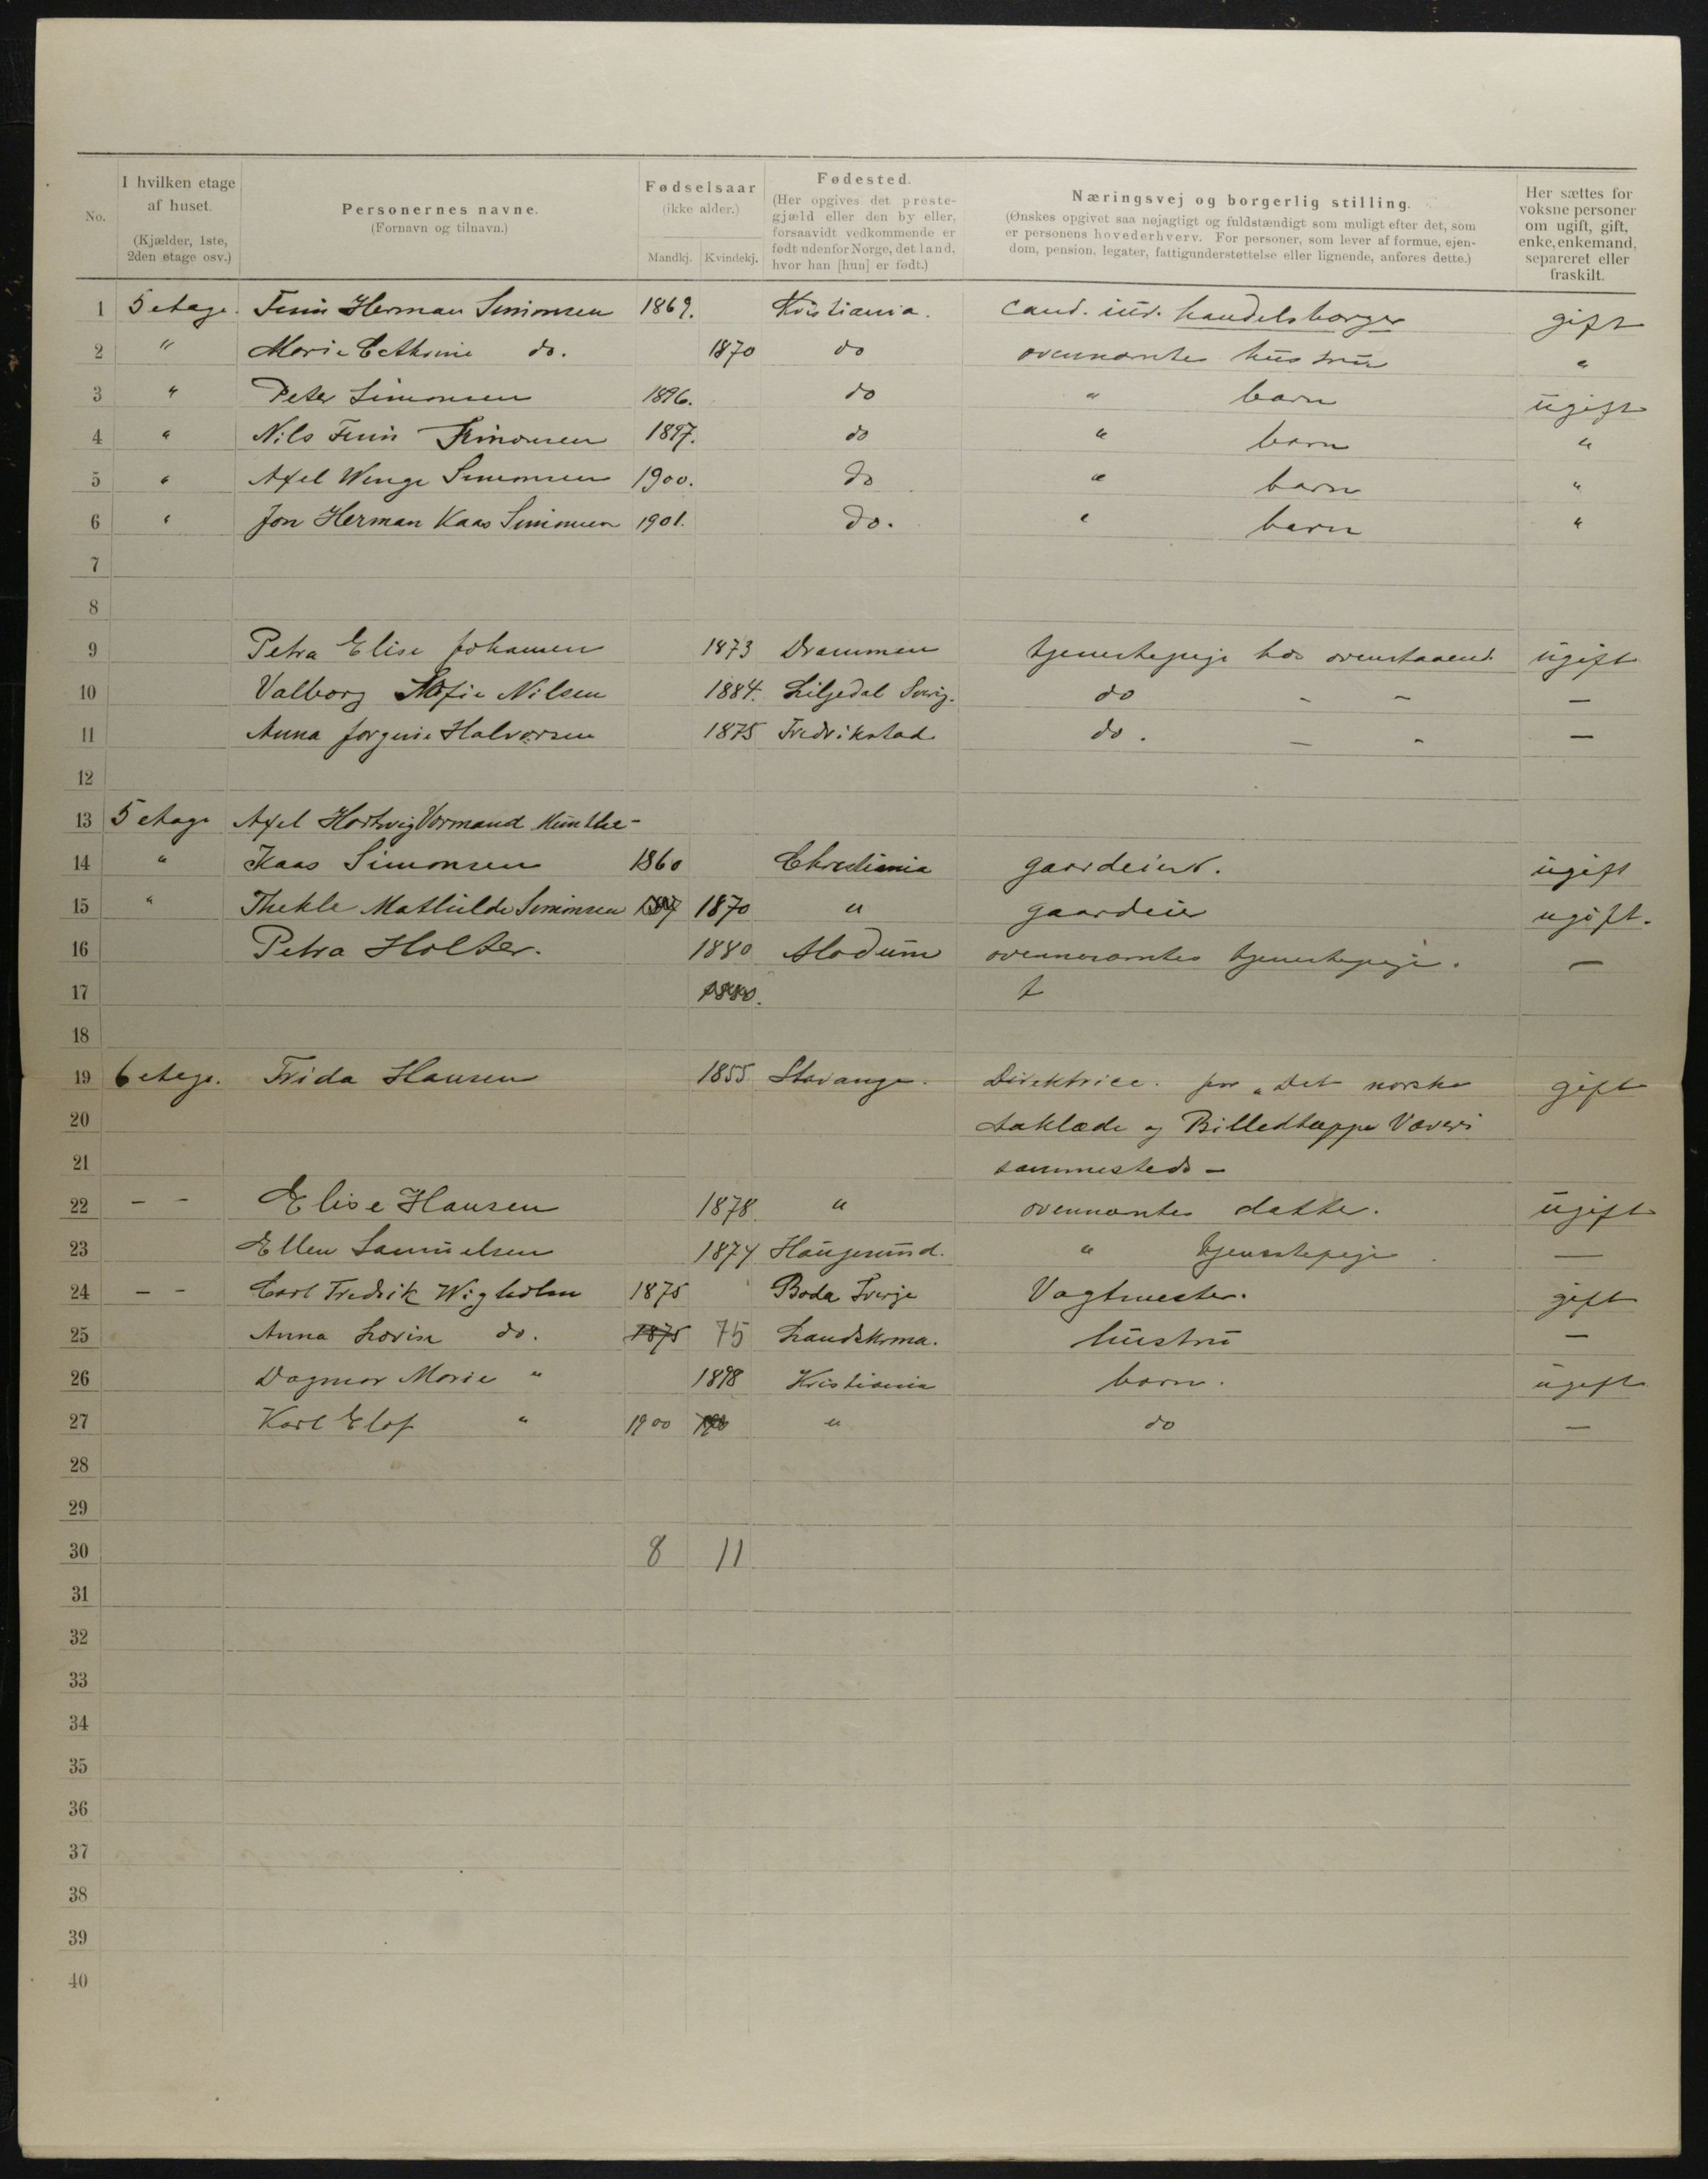 No.
I hvilken etage af huset. (Kjælder, 1ste, 2den etage osv.)
Personernes navne. (Fornavn og tilnavn.)
Fødselsaar (ikke alder.) Mandkj. Kvindekj.
Fødested. (Her opgives det prestegjæld eller den by eller, forsaavidt vedkommende er født udenfor Norge, det land, hvor han [hun] er født.)
Næringsvej og borgerlig stilling. (Ønskes opgivet saa nøjagtigt og fuldstændigt som muligt efter det, som er personens hovederhverv. For personer, som lever af formue, ejendom, pension, legater, fattigunderstøttelse eller lignende, anføres dette.)
Her sættes for voksne personer om ugift, gift, enke, enkemand, separeret eller fraskilt.
1 5 etage. Finn Herman Simonsen 1869. Kristiania. Cand. jur. handelsborger gift
2 " Marie Cathrine do. 1870 do ovennævntes hustru "
3 " Peter Simonsen 1896. do " barn ugift
4 " Nils Finn Simonsen 1897. do " barn "
5 " Axel Winge Simonsen 1900. do " barn "
6 " Jon Herman Kaas Simonsen 1901. do. " barn "
7
8
9 Petra Elise Johansen 1873 Drammen tjenestepige hos ovenstaaend. ugift
10 Valborg Sofie Nilsen 1884. Liljedal Sverig. do - - —
11 Anna Jorgine Halvorsen 1875 Fredrikstad do. - - —
12
13 5 etage Axel Hartvig Vormand Munthe-
14 " Kaas Simonsen 1860 Christiania gaardeier. ugift
15 " Thekle Mathilde Simonsen 1870 " gaardeier ugift.
16 Petra Holter. 1880 Modum ovennævntes tjenestepige. —
17 1880. t
18
19 6 etage. Frida Hansen 1855 Stavanger. Direktrice. for "Det norske gift
20 Aaklæde og Billedtæppe Væveri
21 sammesteds -
22 - - Elise Hansen 1878. " ovennævntes datter. ugift
23 Ellen Samuelsen 1874 Haugesund. " tjenestepige. —
24 - - Carl Fredrik Wigholm 1875 Boda Sverje Vagtmester. gift
25 Anna Lovise do. 1875 75 Landskrona. hustru —
26 Dagmar Marie " 1898 Kristiania barn. ugift
27 Karl Elof " 1900 " do —
28
29
30 8 11
31
32
33
34
35
36
37
38
39
40